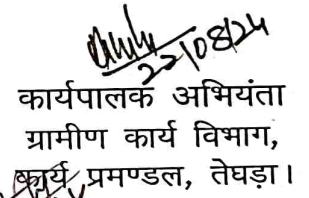 22/08/24
कार्यपालक अभियंता
ग्रामीण कार्य विभाग,
कार्य प्रमण्डल, तेघड़ा।